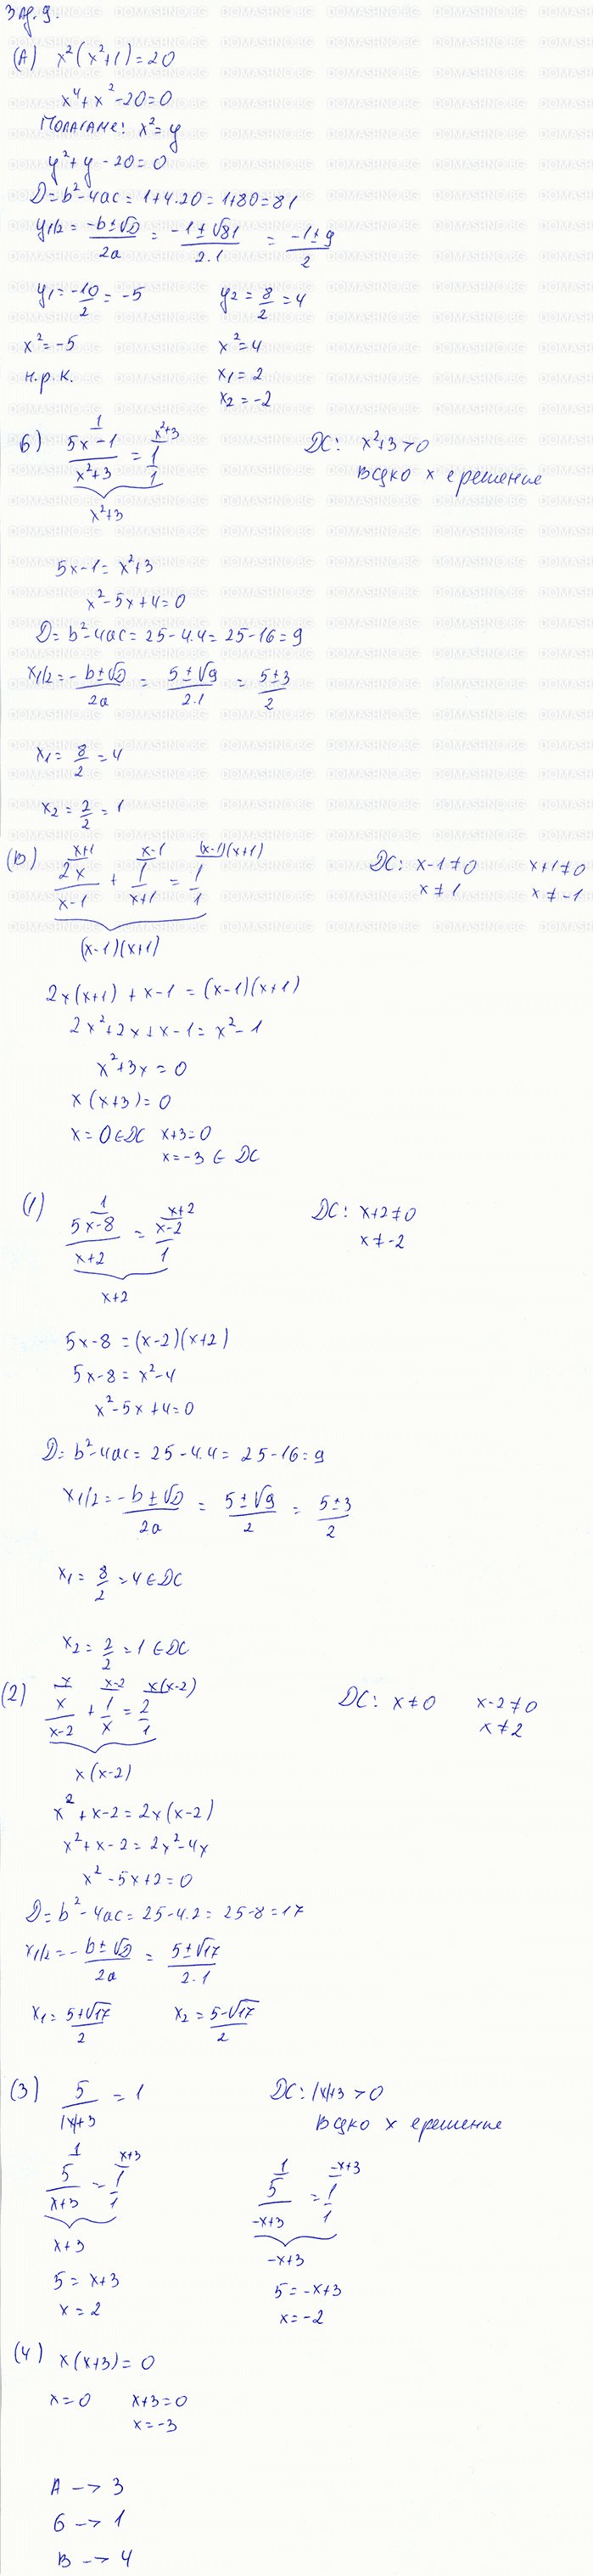 Зад. 9.
(А) x²(x²+1)=20
x⁴+x²-20=0
Полагаме: x²=y
y²+y-20=0
D=b²-4ac=1+4.20=1+80=81
y1/2=(-b±√D)/2a=(-1±√81)/2.1=(-1±9)/2
y₁=-10/2=-5 y₂=8/2=4
x²=-5 x²=4
н.р.к. x₁=2
x₂=-2
1 x²+3
б) (5x-1)/(x²+3)=1/1 DC: x²+3>0
x²+3 Всяко x е решение
5x-1=x²+3
x²-5x+4=0
D=b²-4ac=25-4.4=25-16=9
x1/2=(-b±√D)/2a=(5±√9)/2.1=(5±3)/2
x₁=8/2=4
x₂=2/2=1
x+1 x-1 (x-1)(x+1)
(В) 2x/(x-1)+1/(x+1)=1/1 DC: x-1≠0 x+1≠0
x≠1 x≠-1
(x-1)(x+1)
2x(x+1)+x-1=(x-1)(x+1)
2x²+2x+x-1=x²-1
x²+3x=0
x(x+3)=0
x=0∈DC x+3=0
x=-3∈DC
1 x+2
(1) (5x-8)/(x+2)=(x-2)/1 DC: x+2≠0
x≠-2
x+2
5x-8=(x-2)(x+2)
5x-8=x²-4
x²-5x+4=0
D=b²-4ac=25-4.4=25-16=9
x1/2=(-b±√D)/2a=(5±√9)/2=(5±3)/2
x₁=8/2=4∈DC
x₂=2/2=1∈DC
x x-2 x(x-2)
(2) x/(x-2)+1/x=2/1 DC: x≠0 x-2≠0
x≠2
x(x-2)
x²+x-2=2x(x-2)
x²+x-2=2x²-4x
x²-5x+2=0
D=b²-4ac=25-4.2=25-8=17
x1/2=(-b±√D)/2a=(5±√17)/2.1
x₁=(5+√17)/2 x₂=(5-√17)/2
(3) 5/(|x|+3)=1 DC: |x|+3>0
Всяко x е решение
1 x+3 1 -x+3
5/(x+3)=1/1 5/(-x+3)=1/1
x+3 -x+3
5=x+3 5=-x+3
x=2 x=-2
(4) x(x+3)=0
x=0 x+3=0
x=-3
А -> 3
б -> 1
В -> 4